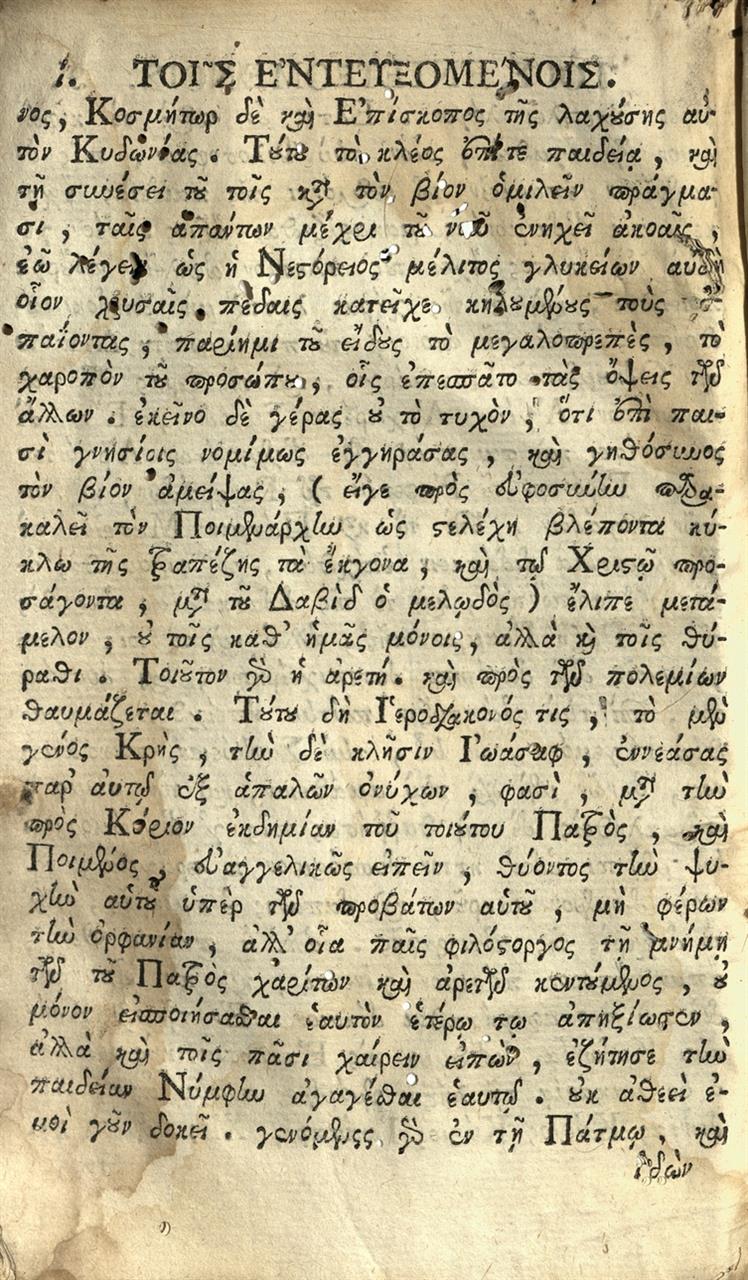 ι. ΤΟΙ͂Σ ΕʼΝΤΕΥΞΟΜΕʹΝΟΙΣ.
νος, Κοσμήτωρ δὲ καὶ Ἐπίσκοπος τῆς λαχούσης αὐ-
τὸν Κυδωνίας. Τούτου τὸ κλέος ἐπί τε παιδείᾳ, καὶ
τῇ συνέσει τοῦ τοῖς κατὰ τὸν βίον ὁμιλεῖν πράγμα-
σι, ταῖς ἁπάντων μέχρι τοῦ νῦν ἐνηχεῖ ἀκοαῖς,
ἐῶ λέγειν ὡς ἡ Νεστόρειος μέλιτος γλυκείων αὐδὴ
οἷον χρυσαῖς πέδαις κατεῖχε κηλουμένους τοὺς ἐ-
παΐοντας, παρίημι τοῦ εἴδους τὸ μεγαλοπρεπὲς, τὸ
χαροπὸν τοῦ προσώπου, οἷς ἐπεσπᾶτο τὰς ὄψεις τῶν
ἄλλων. ἐκεῖνο δὲ γέρας οὐ τὸ τυχὸν, ὅτι ἐπὶ παι-
σὶ γνησίοις νομίμως ἐγγηράσας, καὶ γηθόσυνος
τὸν βίον ἀμείψας, (εἴγε πρὸς εὐφροσύνην παρα-
καλεῖ τὸν Ποιμενάρχην ὡς στελέχη βλέποντα κύ-
κλῳ τῆς τραπέζης τὰ ἔκγονα, καὶ τῷ Χριστῷ προ-
σάγοντα, μετὰ τοῦ Δαβὶδ ὁ μελῳδὸς) ἔλιπε μετά-
μελον, οὐ τοῖς καθ' ἡμᾶς μόνοις, ἀλλὰ καὶ τοῖς θύ-
ραθι. Τοιοῦτον γὰρ ἡ ἀρετή. καὶ πρὸς τῶν πολεμίων
θαυμάζεται. Τούτου δὴ Ἱεροδιάκονός τις, τὸ μὲν
γένος Κρὴς, τὴν δὲ κλῆσιν Ἰωάσαφ, ἐννεάσας
παρ' αὐτῷ ἐξ ἁπαλῶν ὀνύχων, φασὶ, μετὰ τὴν
πρὸς Κύριον ἐκδημίαν τοῦ τοιούτου Πατρὸς, καὶ
Ποιμένος, εὐαγγελικῶς εἰπεῖν, θύοντος τὴν ψυ-
χὴν αὐτοῦ ὑπὲρ τῶν προβάτων αὐτοῦ, μὴ φέρων
τὴν ὀρφανίαν, ἀλλ' οἷα παῖς φιλόστοργος τῇ μνήμῃ
τῶν τοῦ Πατρὸς χαρίτων καὶ ἀρετῶν κεντούμενος, οὐ
μόνον εἰσποιήσασθαι ἑαυτὸν ἑτέρῳ τῳ ἀπηξίωσεν,
ἀλλὰ καὶ τοῖς πᾶσι χαίρειν εἰπὼν, ἐζήτησε τὴν
παιδείαν Νύμφην ἀγαγέσθαι ἑαυτῷ. οὐκ ἀθεεὶ ἐ-
μοὶ γοῦν δοκεῖ. γενόμενος γὰρ ἐν τῇ Πάτμῳ, καὶ
ἰδὼν